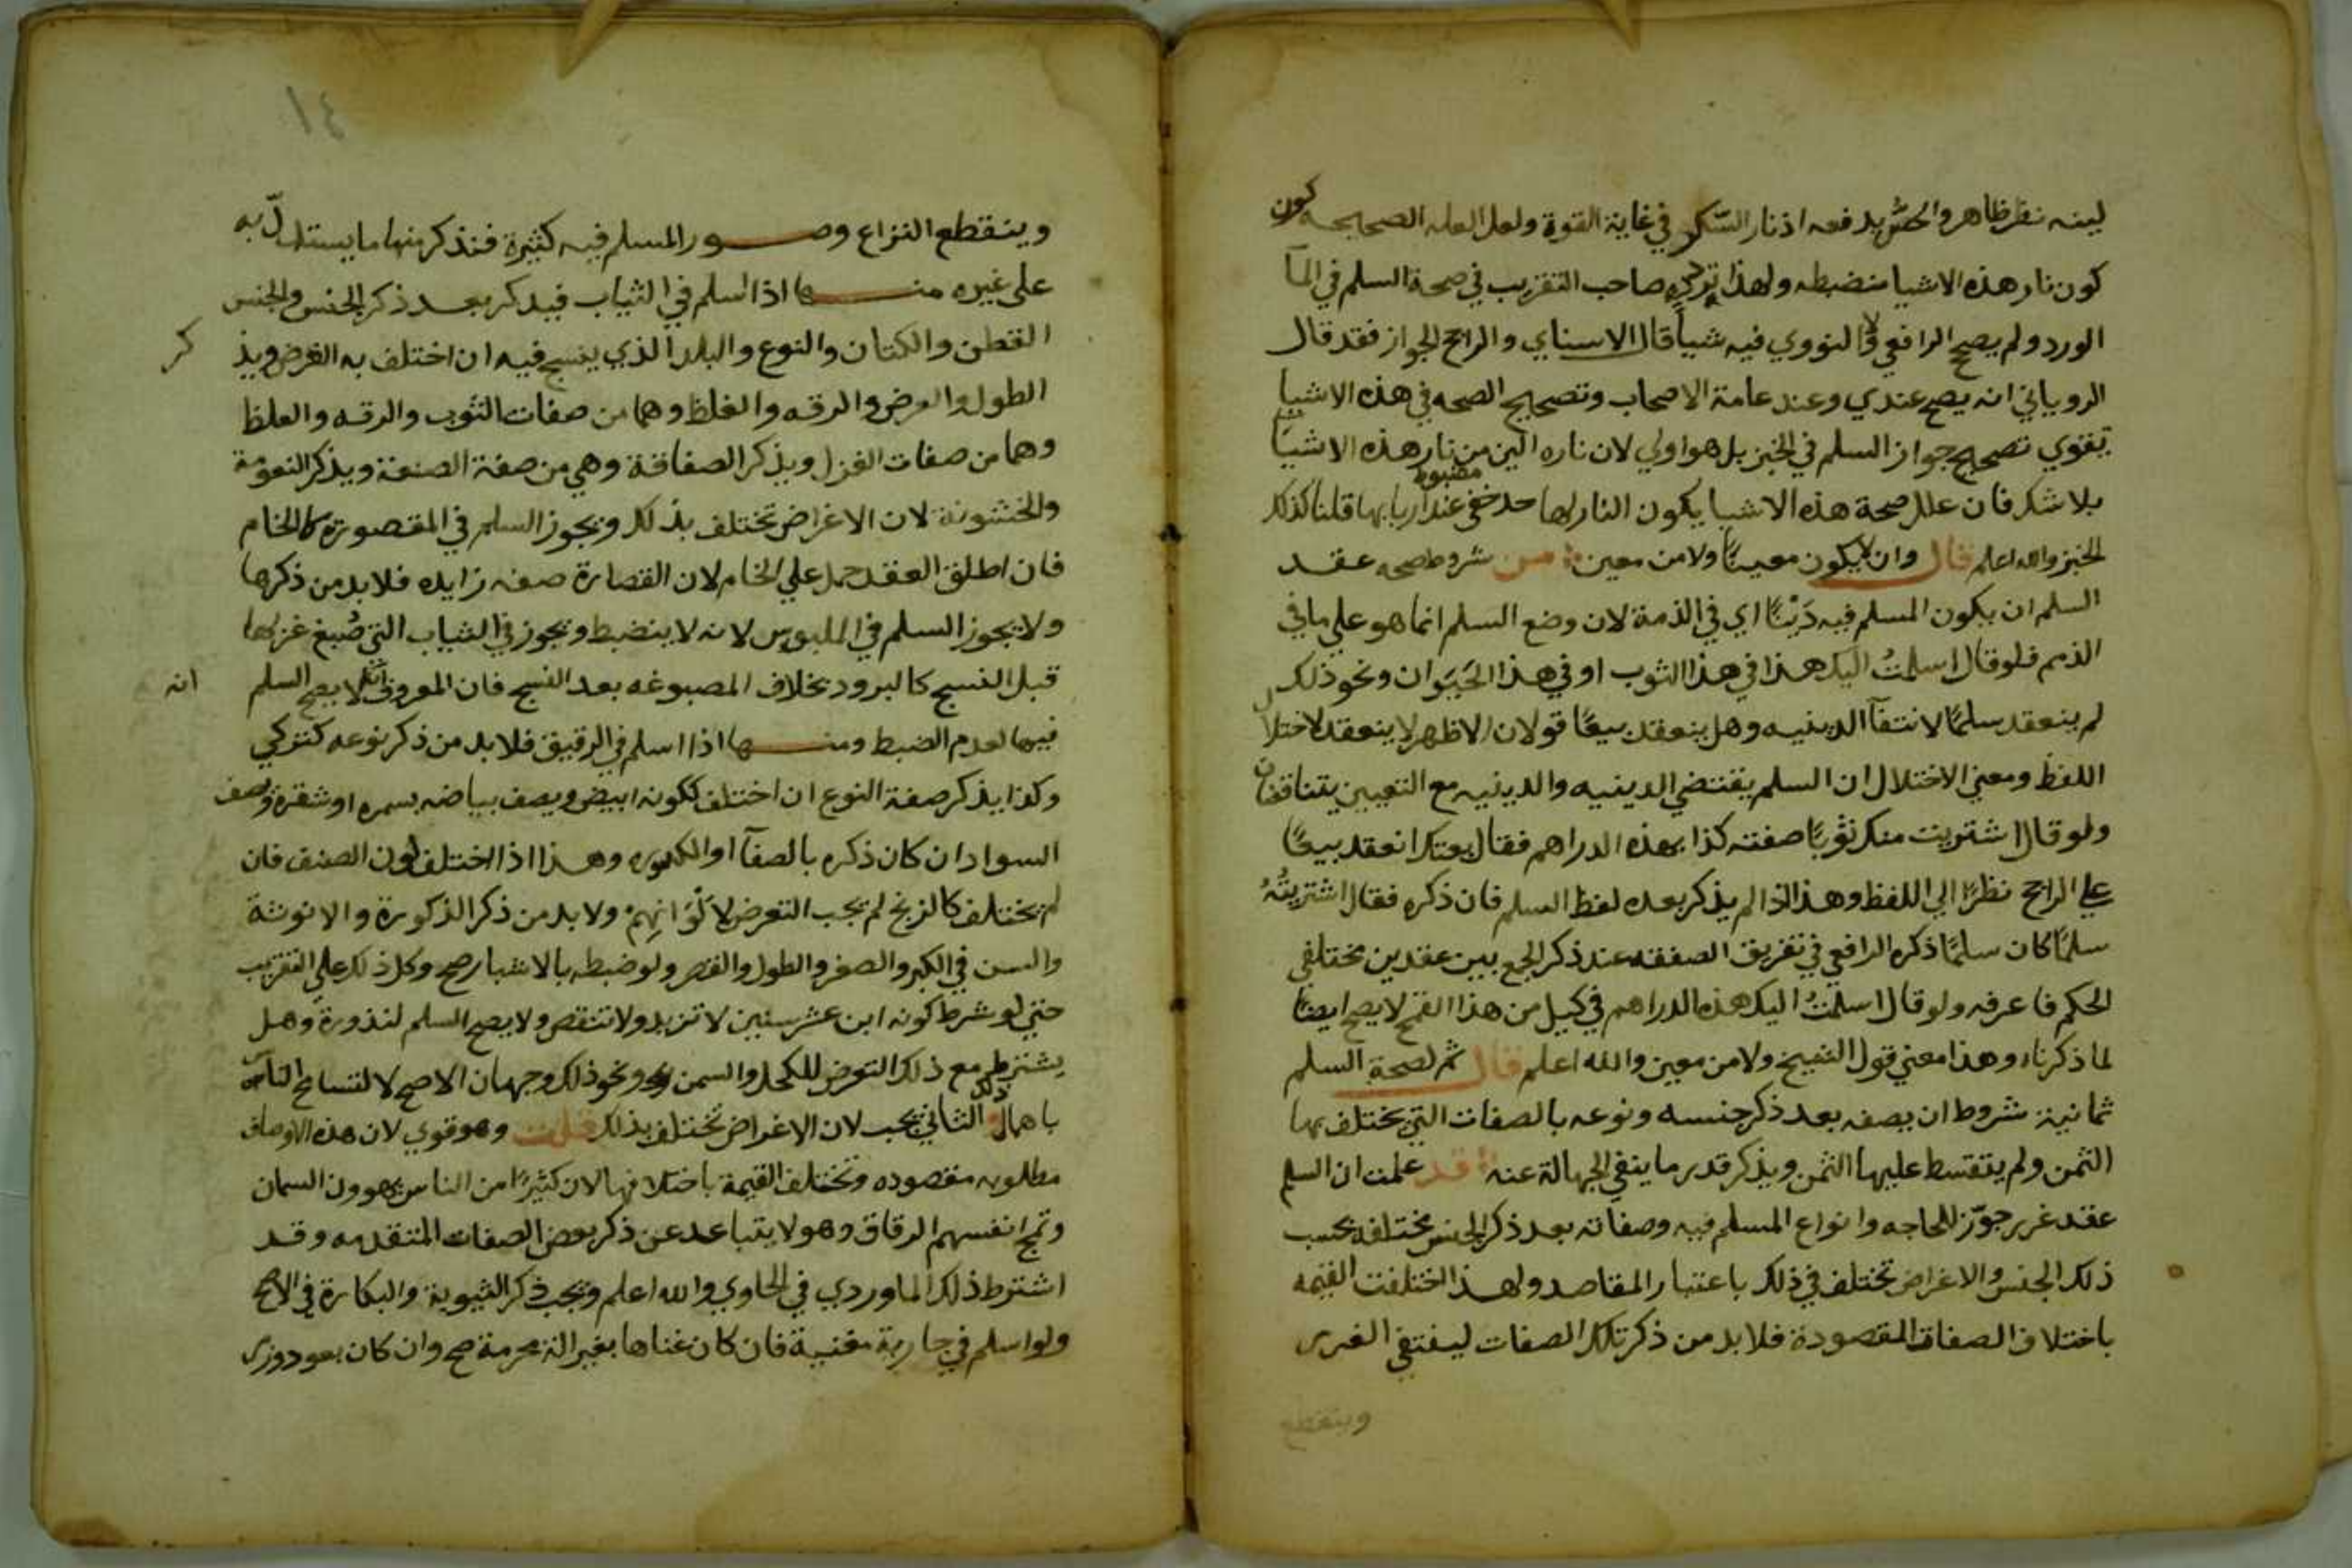 لينه نظر ظاهر والحسّ يدفعه اذ نار السّكر في غاية القوة ولعل العله الصحيحه كون
كون نار هذه الاشيا منضبطه ولهذا تركه صاحب التقريب في صحة السلم في المآ
الورد ولم يصحح الرافعي ولا النووي فيه شياً قال الاسناي والراجح الجواز فقد قال
الروياني انه يصح عندي وعند عامة الاصحاب وتصحيح الصحه في هذه الاشيا
يقوي تصحيح جواز السلم في الخبز بل هو اولي لان ناره الين من نار هذه الاشيآ
بلا شك فان علل صحة هذه الاشيا يكون النار لها حد خفي مضبوط عند اربابها قلنا كذلك
الخبز والله اعلم قال وان لا يكون معيناً ولا من معين من شروط صحه عقد
السلم ان يكون المسلم فيه دَيْنًا اي في الذمة لان وضع السلم انما هو علي ما في
الذمم فلو قال اسلمتُ اليك هذا في هذا الثوب او في هذا الحَيَوان ونحو ذلك
لم ينعقد سلمًا لانتفآ الدينيه وهل ينعقد بيعًا قولان الاظهر لا ينعقد لاختلال
اللفظ ومعني الاختلال ان السلم يقتضي الدينيه والدينيه مع التعيين يتناقضان
ولو قال اشتريت منك ثوبًا صفته كذا بهذه الدراهم فقال بعتك انعقد بيعًا
علي الراجح نظرًا الي اللفظ وهذا اذا لم يذكر بعده لفظ السلم فان ذكره فقال اشتريتُهُ
سلمًا كان سلمًا ذكره الرافعي في تفريق الصفقه عند ذكر الجمع بين عقدين مختلفي
الحكم فاعرفه ولو قال اسلمتُ اليك هذه الدراهم في كيل من هذا القمح لا يصح ايضًا
لما ذكرناه وهذا معني قول الشيخ ولا من معين والله اعلم قال ثم لصحة السلم
ثمانية شروط ان يصفه بعد ذكر جنسه ونوعه بالصفات التي يختلف بها
الثمن ولم يتقسط عليها الثمن ويذكر قدره ما ينفي الجهالة عنه قد علمت ان السلم
عقد غرر جوّز للحاجه وانواع المسلم فيه وصفاته بعد ذكر الجنس مختلفه بحسب
ذلك الجنس والاغراض تختلف في ذلك باعتبار المقاصد ولهذا اختلفت القيمه
باختلاف الصفات المقصودة فلابد من ذكر تلك الصفات لينتفي الغرر
وينقطع
١٤
وينقطع النزاع وصور المسلم فيه كثيرة فنذكر منها ما يستدلّ به
علي غيره منها اذا اسلم في الثياب فيذكر بعد ذكر الجنس والجنس
القطن والكتان والنوع والبلد الذي ينسج فيه ان اختلف به الغرض ويذكر
الطول والعرض والرقه والغلظ وهما من صفات الثوب والرقه والغلظ
وهما من صفات الغزل ويذكر الصفاقة وهي من صفة الصنعة ويذكر النعومة
والخشونة لان الاغراض تختلف بذلك ويجوز السلم في المقصورة كالخام
فان اطلق العقد حمل علي الخام لان القصارة صفه زايده فلابد من ذكرها
ولا يجوز السلم في الملبوس لانه لا ينضبط ويجوز في الثياب التي صُبغ غزلها
قبل النسج كالبرود بخلاف المصبوغه بعد النسج فان المعروف انه لا يصح السلم
انه
فيها لعدم الضبط ومنها اذا اسلم في الرقيق فلابد من ذكر نوعه كتركي
وكذا يذكر صفة النوع ان اختلف ككونه ابيض ويصف بياضه بسمره او شقرة ويصف
السواد ان كان ذكره بالصفآ او الكدوره وهذا اذا اختلف لون الصنف فان
لم يختلف كالزنج لم يجب التعرض لاَلْوَانِهِمْ ولابد من ذكر الذكورة والانوثة
والسن في الكبر والصغر والطول والقصر ولو ضبطه بالاشبار صح وكل ذلك علي التقريب
حتي لو شرط كونه ابن عشر سنين لا تزيد ولا تنقص ولا يصح السلم لندورة وهل
يشترط مع ذلك التعرض للكحل والسمن ونحو ذلك وجهان الاصح لا لتسامح الناس
باهمال ذلك الثاني يجب لان الاغراض تختلف بذلك قلت وهو قوي لان هذه الاوصاف
مطلوبه مقصوده وتختلف القيمة باختلافها لان كثيرًا من الناس يهوون السمان
وتمج انفسهم الرقاق وهو لا يتباعد عن ذكر بعض الصفات المتقدمه وقد
اشترط ذلك الماوردي في الحاوي والله اعلم ويجب ذكر الثيوبة والبكارة في الاصح
ولو اسلم في جارية مغنية فان كان غناها بغير الة محرمة صح وان كان بعود وزمر